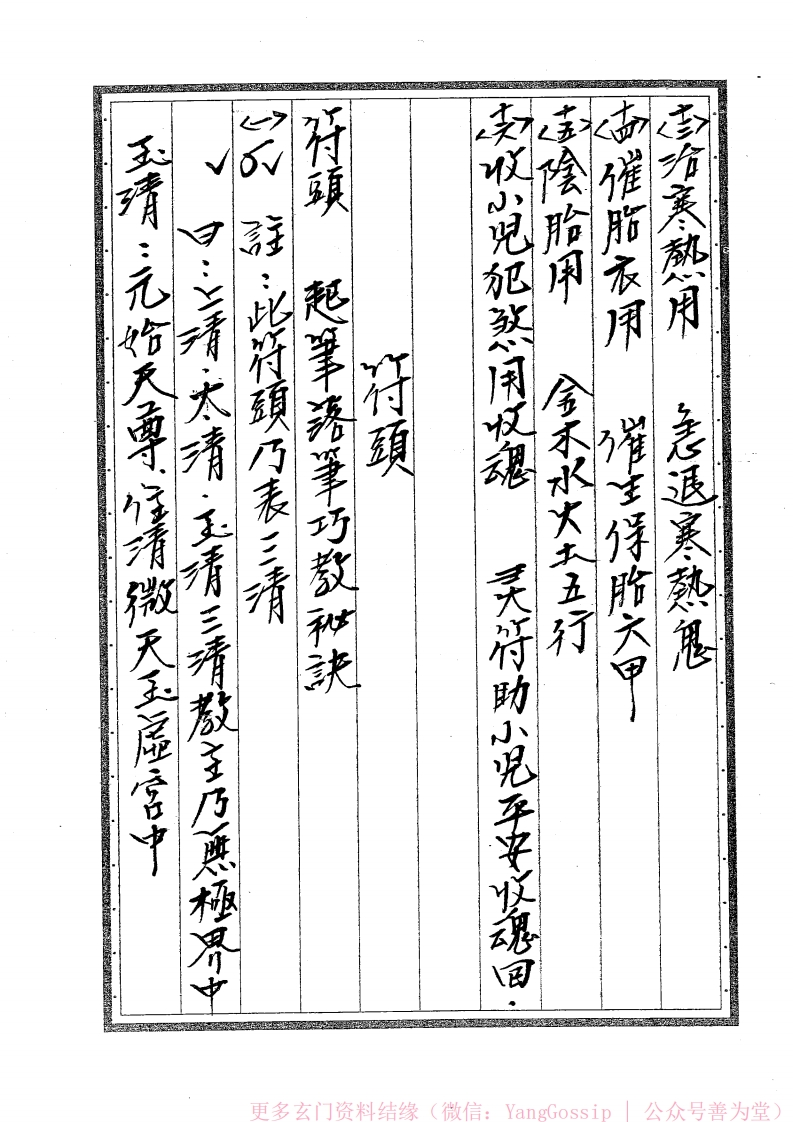 〈十三〉治寒熱用　急退寒熱鬼
〈十四〉催胎衣用　催生保胎六甲
〈十五〉陰胎用　金木水火土五行
〈十六〉收小児犯煞用收魂　灵符助小児平安收魂回.
符頭
符頭　起筆落筆巧教秘訣
〈一〉　註：此符頭乃表三清
曰：上清.太清.玉清三清教主乃無極界中
玉清：元始天尊、住清微天玉虛宮中
更多玄门资料结缘（微信：YangGossip | 公众号善为堂）